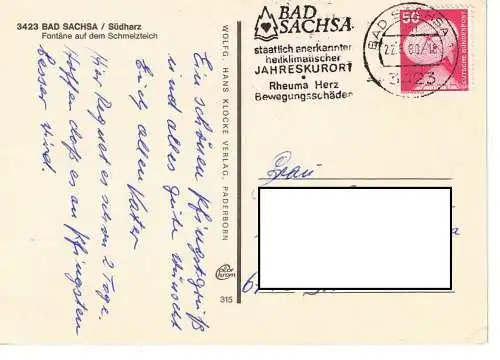 3423 BAD SACHSA / Südharz
Fontäne auf dem Schmelzteich
Ein schönen Pfingstgruß
und alles gute wünscht
Euch allen Vater
Hier Regnet es schon 2 Tage.
Hoffen daß es an Pfingsten
besser wird.
WOLFG. HANS KLOCKE VERLAG, PADERBORN
color
chrom
315
BAD
SACHSA
staatlich anerkannter
heilklimatischer
JAHRESKURORT
Rheuma Herz
Bewegungsschäden
BAD SACHSA 1
3423
50
DEUTSCHE BUNDESPOST
Frau